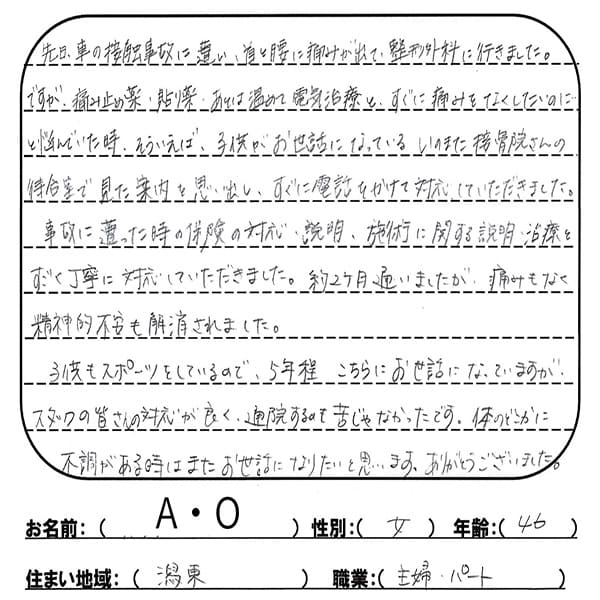 先日、車の接触事故に遭い、首と腰に痛みが出て、整形外科に行きました。
ですが、痛み止め薬・貼り薬・あとは温めて電気治療と、すぐに痛みをなくしたいのに
と悩んでいた時、そういえば、子供がお世話になっている いのまた接骨院さんの
待合室で見た案内を思い出し、すぐに電話をかけて対応していただきました。
事故に遭った時の保険の対応・説明、施術に関する説明・治療と
すごく丁寧に対応していただきました。約2ヶ月通いましたが、痛みもなく
精神的不安も解消されました。
子供もスポーツをしているので、5年程 こちらにお世話になっていますが、
スタッフの皆さんの対応が良く、通院するのも苦じゃなかったです。体のどこかに
不調がある時はまたお世話になりたいと思います。ありがとうございました。
お名前:( A・O ) 性別:( 女 ) 年齢:( 46 )
住まい地域:( 潟東 ) 職業:( 主婦・パート )